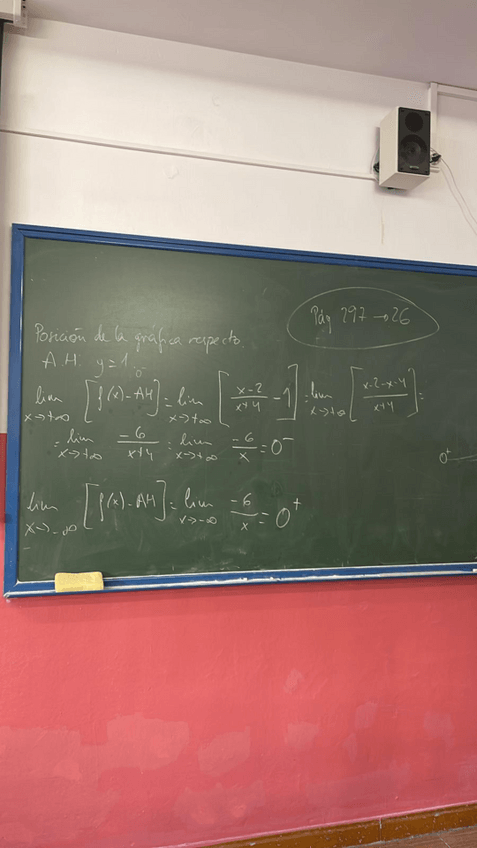 Pág 297 → 26
Posición de la gráfica respecto
A.H. y=1
lim x→+∞ [f(x)-AH] = lim x→+∞ [x-2/x+4 - 1] = lim x→+∞ [x-2-x-4/x+4] =
= lim x→+∞ -6/x+4 = lim x→+∞ -6/x = 0⁻
0⁺
lim x→-∞ [f(x)-AH] = lim x→-∞ -6/x = 0⁺